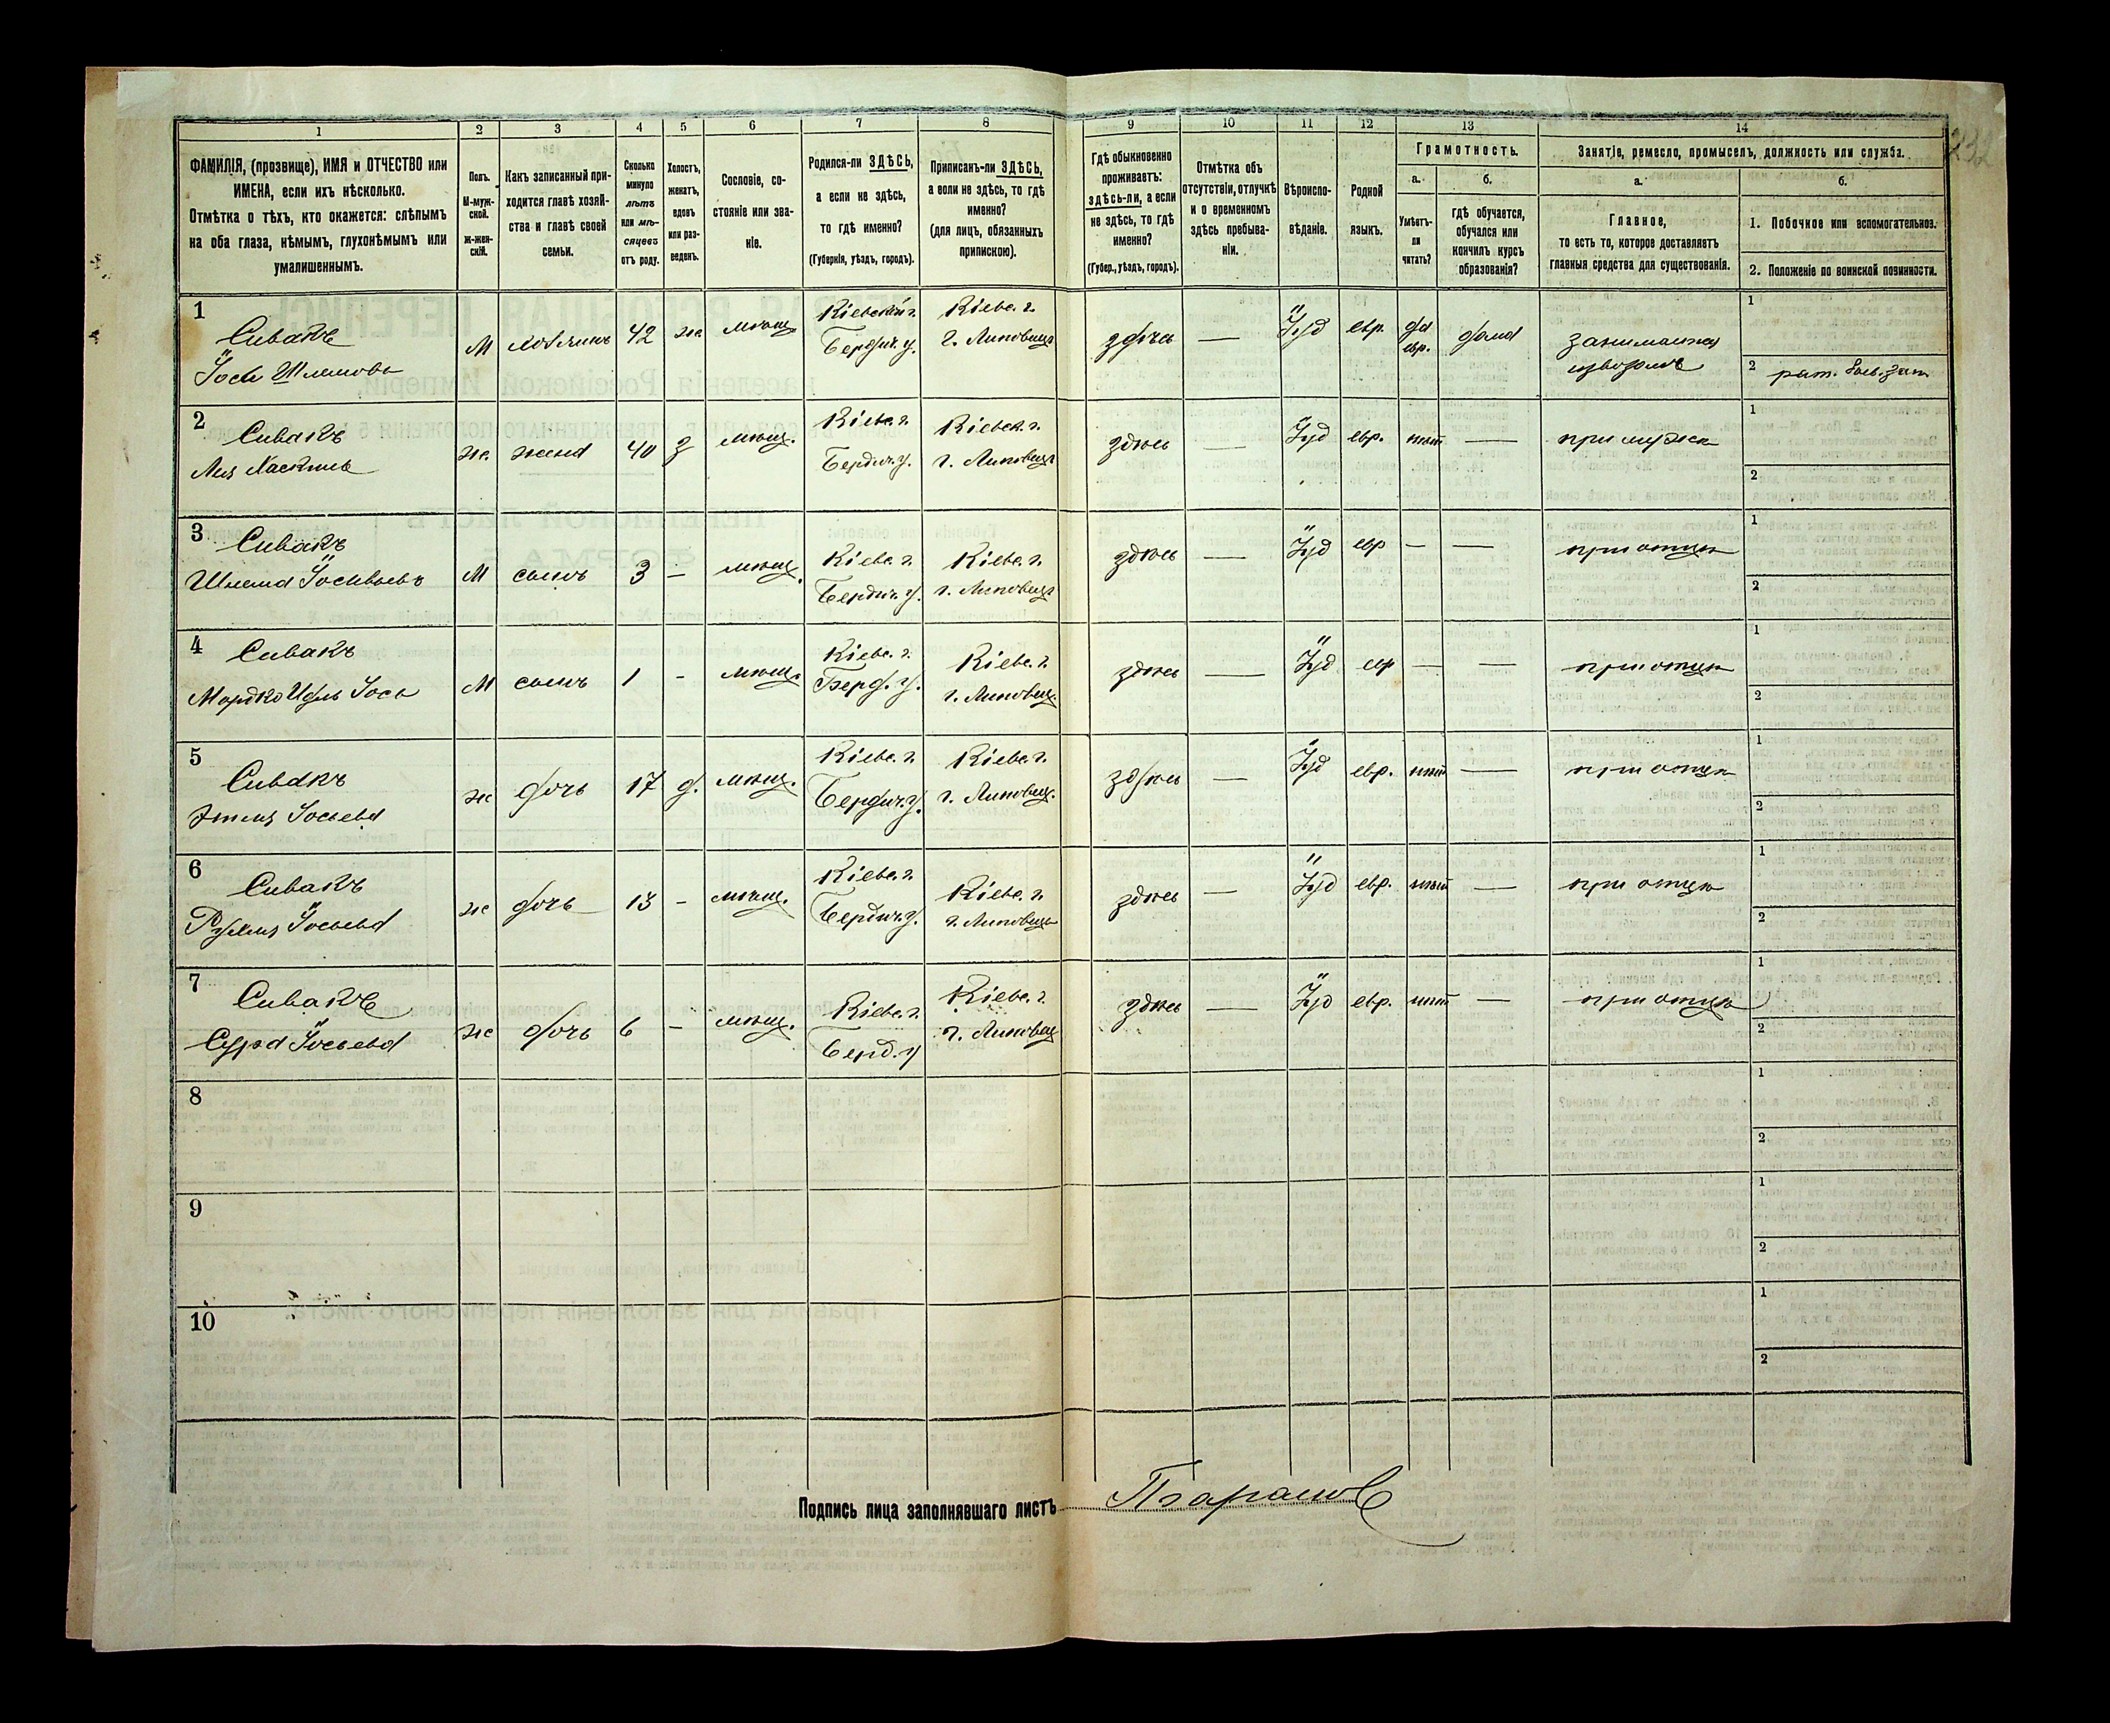 1 2 3 4 5 6 7 8 9 10 11 12 13 14
ФАМИЛІЯ, (прозвище), ИМЯ и ОТЧЕСТВО или
ИМЕНА, если ихъ нѣсколько.
Отмѣтка о тѣхъ, кто окажется: слѣпымъ
на оба глаза, нѣмымъ, глухонѣмымъ или
умалишеннымъ.
Полъ.
М-муж-
ской.
ж-жен-
скій.
Какъ записанный при-
ходится главѣ хозяй-
ства и главѣ своей
семьи.
Сколько
минуло
лѣтъ
или мѣ-
сяцевъ
отъ роду.
Холостъ,
женатъ,
вдовъ
или раз-
веденъ.
Сословіе, со-
стояніе или зва-
ніе.
Родился-ли ЗДѢСЬ,
а если не здѣсь,
то гдѣ именно?
(Губернія, уѣздъ, городъ).
Приписанъ-ли ЗДѢСЬ,
а если не здѣсь, то гдѣ
именно?
(для лицъ, обязанныхъ
припискою).
Гдѣ обыкновенно
проживаетъ:
здѣсь-ли, а если
не здѣсь, то гдѣ
именно?
(Губер., уѣздъ, городъ).
Отмѣтка объ
отсутствіи, отлучкѣ
и о временномъ
здѣсь пребыва-
ніи.
Вѣроиспо-
вѣданіе.
Родной
языкъ.
Грамотность.
а.
Умѣетъ-
ли
читать?
б.
гдѣ обучается,
обучался или
кончилъ курсъ
образованія?
Занятіе, ремесло, промыселъ, должность или служба.
а.
Главное,
то есть то, которое доставляетъ
главныя средства для существованія.
б.
1. Побочное или вспомогательное.
2. Положеніе по воинской повинности.
232
1
Сивакъ
Іось Шлемовъ
М хозяинъ 42 ж мѣщ.
Кіевской г.
Бердич. у.
Кіевс. г.
г. Липовецъ
здѣсь — Іуд евр. да
евр. дома
занимается
извозомъ
1
2
2
Сивакъ
Лея
ж. жена 40 з мѣщ.
Кіевс. г.
Бердич. у.
Кіевск. г.
г. Липовецъ
здѣсь — Іуд евр. нѣт —
при мужѣ
1
2
3
Сивакъ
Шлема Іосьевъ
М сынъ 3 – мѣщ.
Кіевс. г.
Бердич. у.
Кіевс. г.
г. Липовецъ
здѣсь — Іуд евр – —
при отцѣ
1
2
4
Сивакъ
Мордко Идль Іось
М сынъ 1 – мѣщ.
Кіевс. г.
Берд. у.
Кіевс. г.
г. Липовец.
здѣсь — Іуд евр — —
при отцѣ
1
2
5
Сивакъ
Этля Іосьева
ж дочь 17 д. мѣщ.
Кіевс. г.
Бердич. у.
Кіевс. г.
г. Липовец.
здѣсь — Іуд евр. нѣт —
при отцѣ
1
2
6
Сивакъ
Рухля Іосьева
ж дочь 13 – мѣщ.
Кіевс. г.
Бердич. у.
Кіевс. г.
г. Липовецъ
здѣсь — Іуд евр. нѣт —
при отцѣ
1
2
7
Сивакъ
Сура Іосьева
ж дочь 6 – мѣщ.
Кіевс. г.
Берд. у
Кіевс. г.
г. Липовец
здѣсь — Іуд евр. нѣт —
при отцѣ
1
2
8
1
2
9
1
2
10
1
2
Подпись лица заполнявшаго листъ